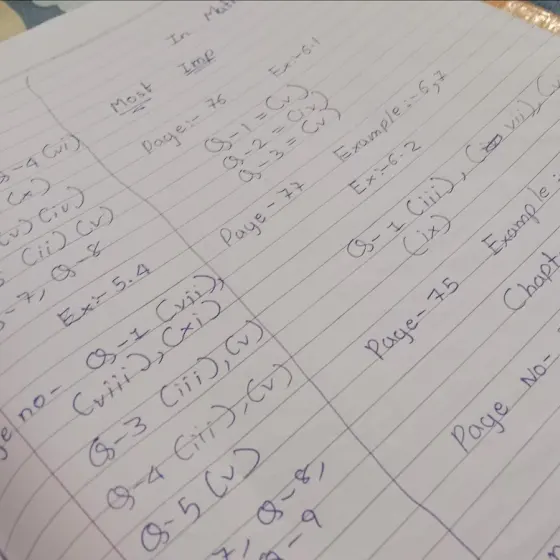 In
Most Imp
Page:- 76 Ex:- 6.1
Q-1 = (v)
Q-2 = (ix)
Q-3 = (v)
Page-77 Example:- 6,7
Ex:- 6.2
Q-1 (iii), (vii), (v
(ix)
Page-75 Example:
Chapt
Page No-
Q-4 (vi)
(x)
(v) (iv)
(ii) (v)
-7, Q-8
Ex:- 5.4
e no- Q-1 (vii),
(viii), (xi)
Q-3 (iii), (v)
Q-4 (iii), (v)
Q-5 (v)
7, Q-8,
Q-9